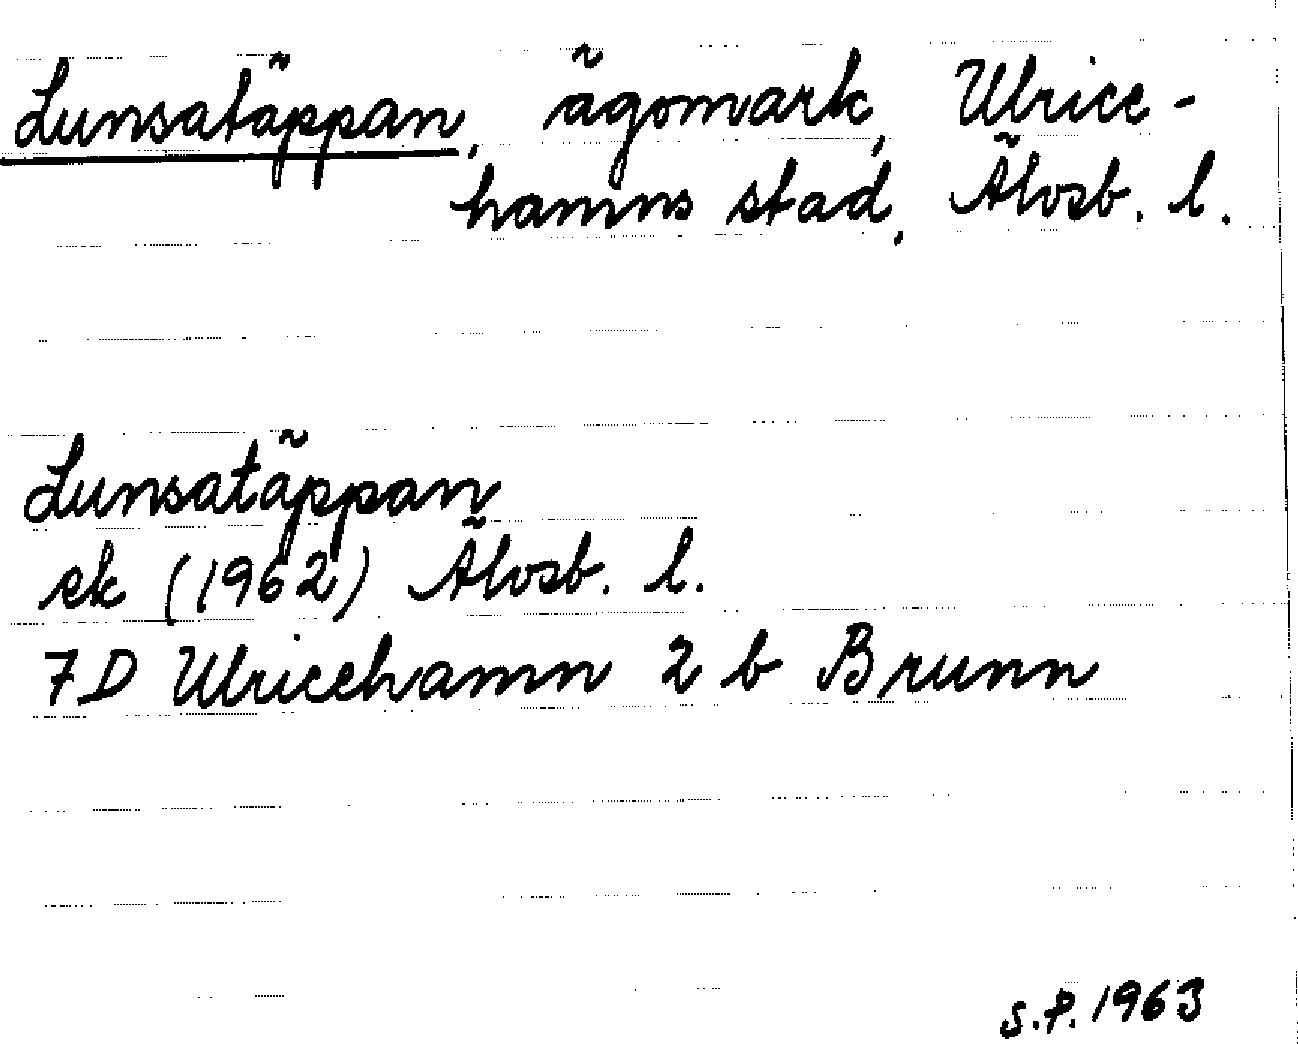 Lunsatäppan, ägomark, Ulrice-
hamns stad, Älvsb. l.
Lunsatäppan
ek (1962) Älvsb. l.
7D Ulricehamn 2 b Brunn
S.P. 1963